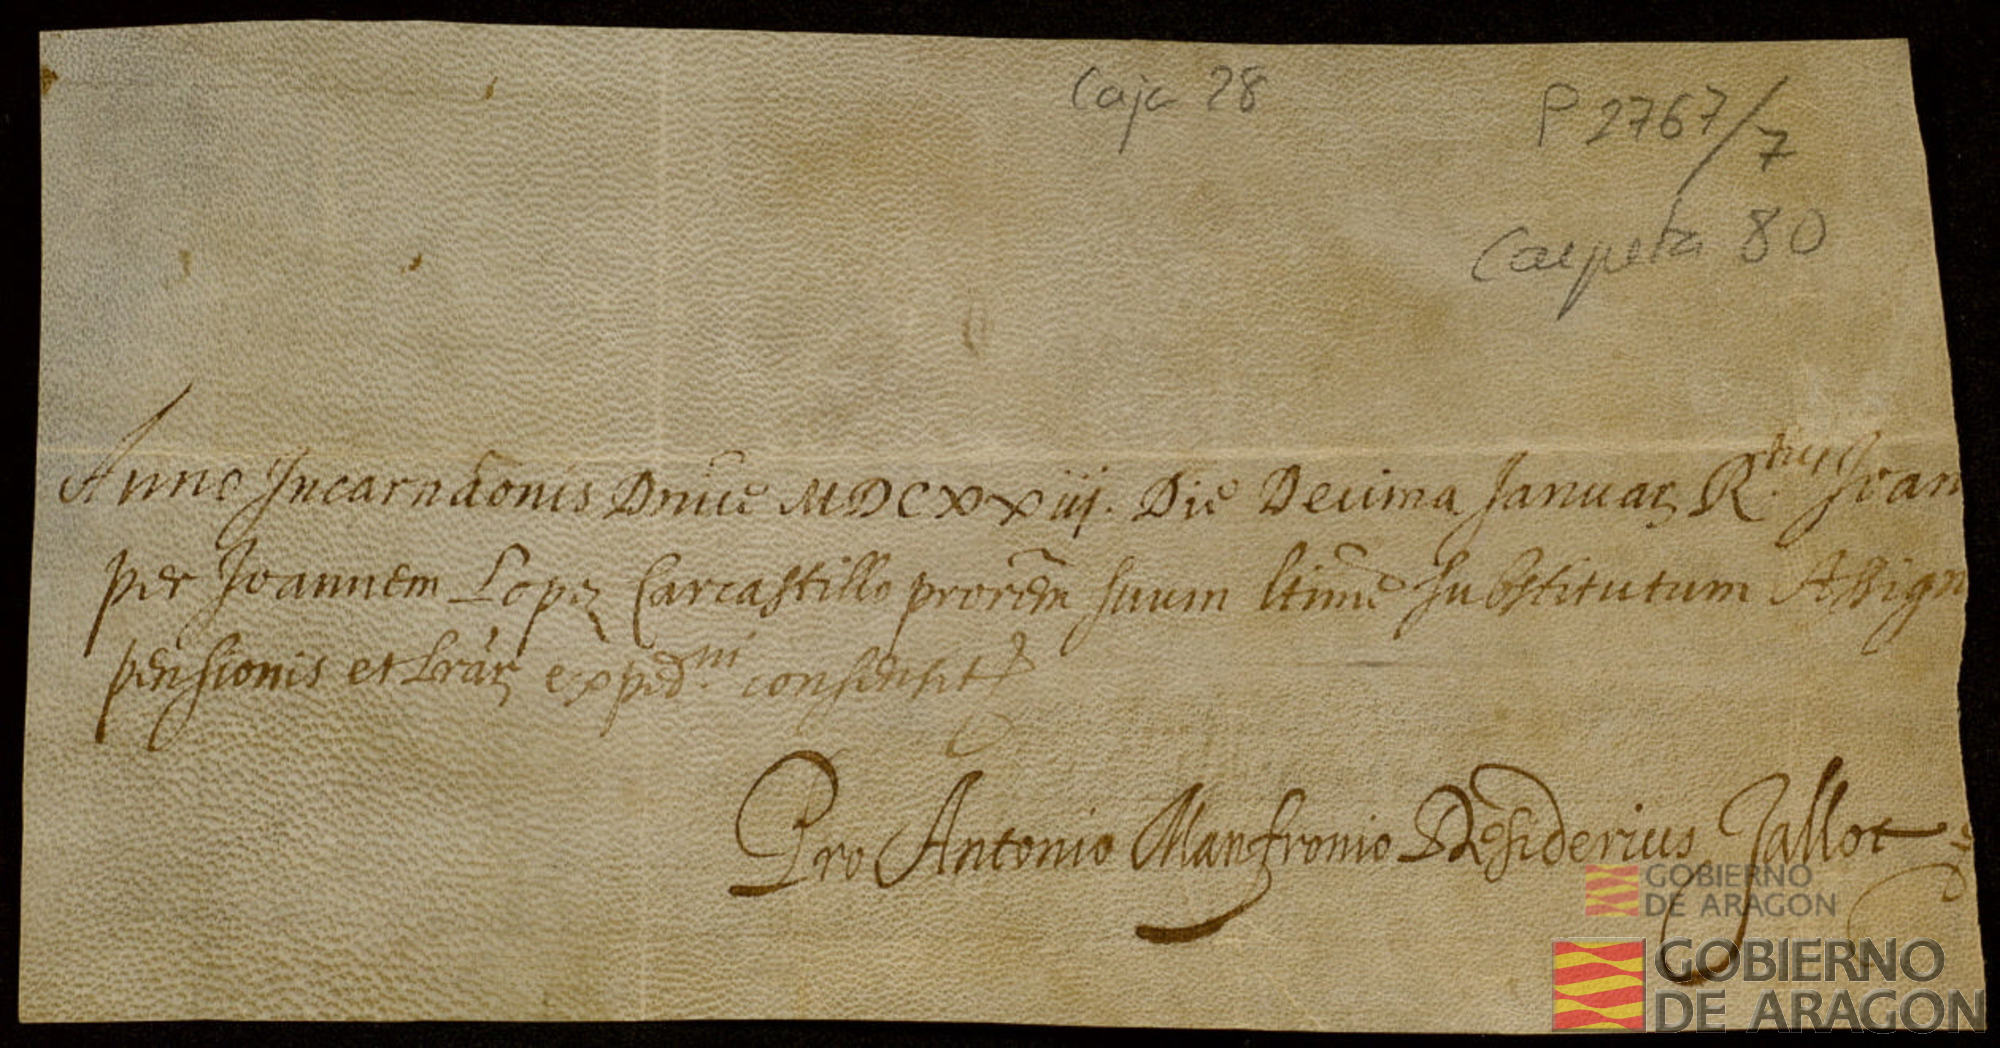 Caja 28
P 2767/7
Carpeta 80
Anno Incarnãonis Dnicẽ MDCXXiij. Die Decima Januar̃ R.dus Joan
per Joannem Lopez Carcastillo prorẽm suum ltimẽ substitutum Assign
pensionis et Lrar̃ exped.ni consensit
Pro Antonio Manfronio Desiderius Jallot
GOBIERNO
DE ARAGON
GOBIERNO
DE ARAGON